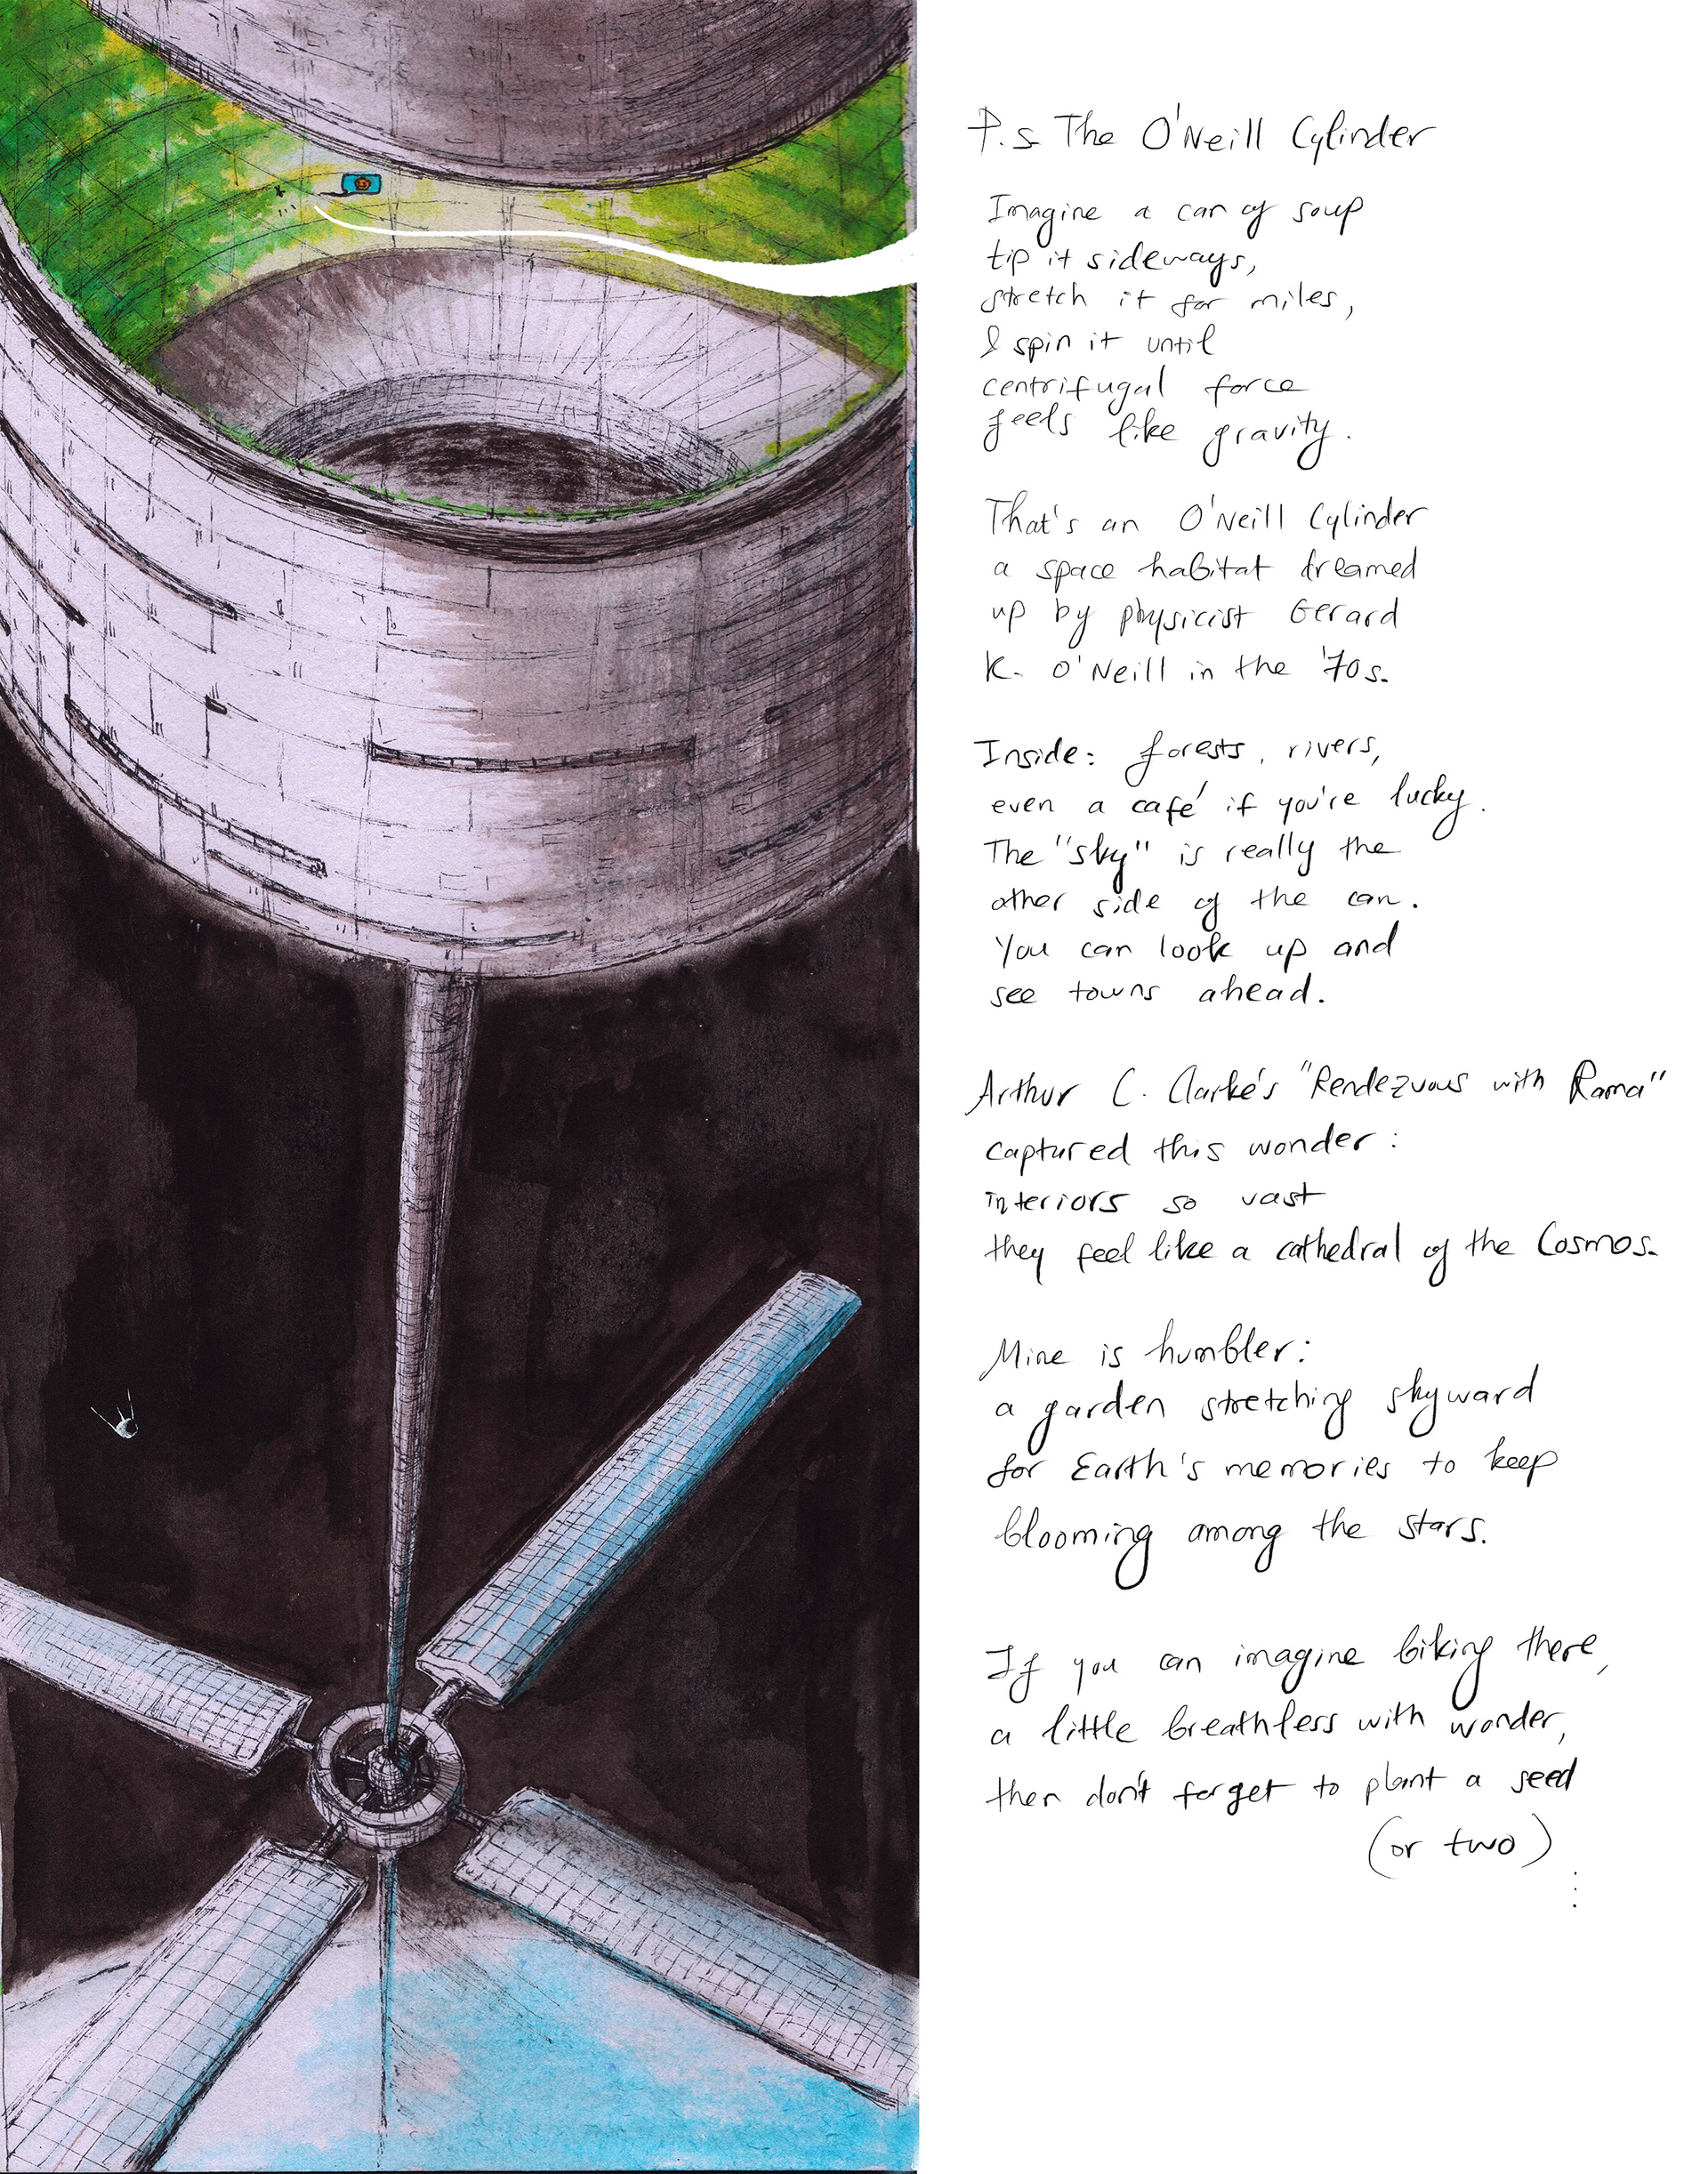 P.S The O'Neill Cylinder
Imagine a can of soup
tip it sideways,
stretch it for miles,
& spin it until
centrifugal force
feels like gravity.
That's an O'Neill Cylinder
a space habitat dreamed
up by physicist Gerard
K. O'Neill in the '70s.
Inside: forests, rivers,
even a café if you're lucky.
The "sky" is really the
other side of the can.
You can look up and
see towns ahead.
Arthur C. Clarke's "Rendezvous with Rama"
captured this wonder:
interiors so vast
they feel like a cathedral of the Cosmos.
Mine is humbler:
a garden stretching skyward
for Earth's memories to keep
blooming among the stars.
If you can imagine biking there,
a little breathless with wonder,
then don't forget to plant a seed
(or two)
⋮